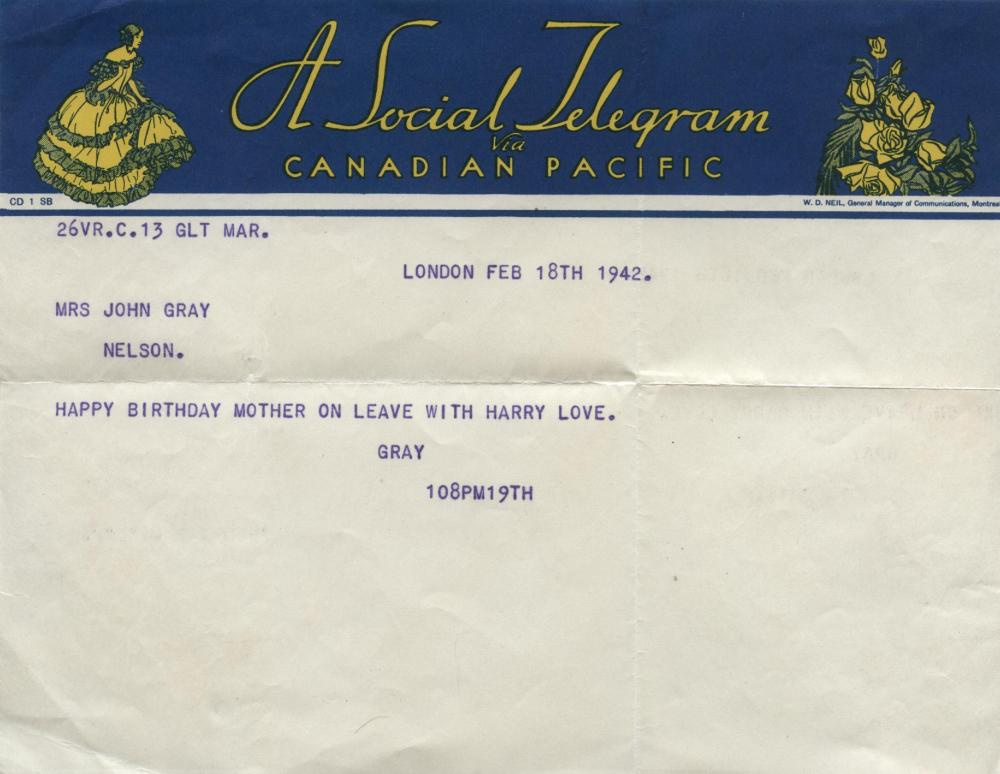 A Social Telegram
Via
CANADIAN PACIFIC
CD 1 SB
W. D. NEIL, General Manager of Communications, Montrea
26VR.C.13 GLT MAR.
LONDON FEB 18TH 1942.
MRS JOHN GRAY
NELSON.
HAPPY BIRTHDAY MOTHER ON LEAVE WITH HARRY LOVE.
GRAY
108PM19TH